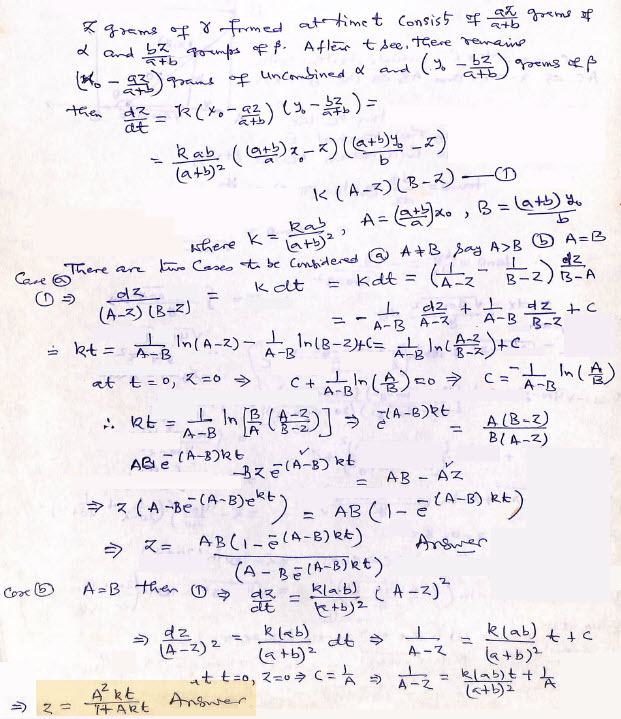 z grams of γ formed at time t consist of az/(a+b) grams of
α and bz/(a+b) gromps of β. After t sec, there remains
(x₀ - az/(a+b)) grams of uncombined α and (y₀ - bz/(a+b)) grems of β
then dz/dt = k(x₀ - az/(a+b)) (y₀ - bz/(a+b)) =
= kab/(a+b)² ((a+b)/a x₀ - z) ((a+b)y₀/b - z)
K (A-z)(B-z) — ①
where K = kab/(a+b)², A = ((a+b)/a)x₀, B = (a+b)y₀/b
There are two Cases to be Considered ⓐ A≠B, say A>B ⓑ A=B
Case ⓐ
① ⇒ dz/((A-z)(B-z)) = kdt = kdt = (1/(A-z) - 1/(B-z)) dz/(B-A)
= - 1/(A-B) dz/(A-z) + 1/(A-B) dz/(B-z) + C
= kt = 1/(A-B) ln(A-z) - 1/(A-B) ln(B-z)+C = 1/(A-B) ln((A-z)/(B-z)) + C
at t=0, z=0 ⇒ C + 1/(A-B) ln(A/B) = 0 ⇒ C = -1/(A-B) ln(A/B)
∴ kt = 1/(A-B) ln[B/A ((A-z)/(B-z))] ⇒ e^-(A-B)kt = A(B-z)/(B(A-z))
AB e^-(A-B)kt - Bz e^-(A-B)kt = AB - Az
⇒ z(A-Be^-(A-B)ekt) = AB(1 - e^-(A-B)kt)
⇒ z = AB(1-e^-(A-B)kt)/(A - Be^-(A-B)kt) Answer
Case ⓑ A=B then ① ⇒ dz/dt = k(a.b)/(a+b)² (A-z)²
⇒ dz/(A-z)² = k(ab)/(a+b)² dt ⇒ 1/(A-z) = k(ab)/(a+b)² t + C
at t=0, z=0 ⇒ C = 1/A ⇒ 1/(A-z) = k(ab)t/(a+b)² + 1/A
⇒ z = A²kt/(1+Akt) Answer